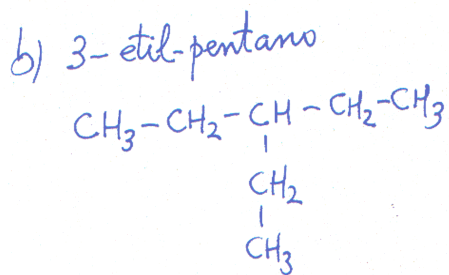 b) 3-etil-pentano
CH₃-CH₂-CH-CH₂-CH₃
CH₂
CH₃